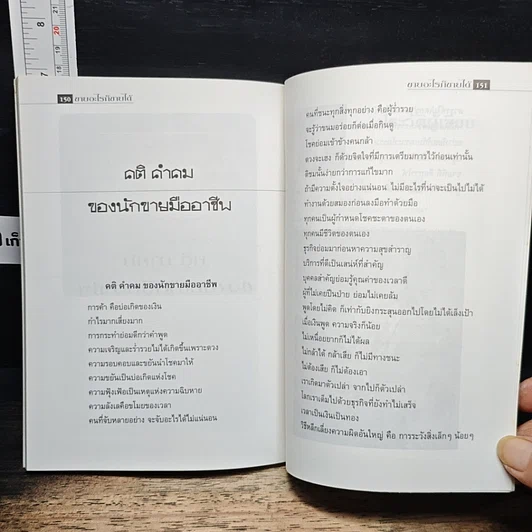 8
20
19
18
17
7
150 ขายอะไรก็ขายได้
คติ คำคม
ของนักขายมืออาชีพ
คติ คำคม ของนักขายมืออาชีพ
การค้า คือบ่อเกิดของเงิน
กำไรมากเสี่ยงมาก
การกระทำย่อมดีกว่าคำพูด
ความเจริญและร่ำรวยไม่ได้เกิดขึ้นเพราะดวง
ความรอบคอบและขยันนำโชคมาให้
ความขยันเป็นบ่อเกิดแห่งโชค
ความฟุ้งเฟ้อเป็นเหตุแห่งความฉิบหาย
ความลังเลคือขโมยของเวลา
คนที่จับหลายอย่าง จะจับอะไรได้ไม่แน่นอน
ขายอะไรก็ขายได้ 151
คนที่ชนะทุกสิ่งทุกอย่าง คือผู้ร่ำรวย
จะรู้ว่าขนมอร่อยก็ต่อเมื่อกินดู
โชคย่อมเข้าข้างคนกล้า
ดวงจะเฮง ก็ด้วยจิตใจที่มีการเตรียมการไว้ก่อนเท่านั้น
ติชมนั้นง่ายกว่าการแก้ไขมาก
ถ้ามีความตั้งใจอย่างแน่นอน ไม่มีอะไรที่น่าจะเป็นไปไม่ได้
ทำงานด้วยสมองก่อนลงมือทำด้วยมือ
ทุกคนเป็นผู้กำหนดโชคชะตาของตนเอง
ทุกคนมีชีวิตของตนเอง
ธุรกิจย่อมมาก่อนหาความสุขสำราญ
บริการที่ดีเป็นเสน่ห์ที่สำคัญ
บุคคลสำคัญย่อมรู้คุณค่าของเวลาดี
ผู้ที่ไม่เคยปีนป่าย ย่อมไม่เคยล้ม
พูดโดยไม่คิด ก็เท่ากับยิงกระสุนออกไปโดยไม่ได้เล็งเป้า
เมื่อเงินพูด ความจริงก็น้อย
ไม่เหนื่อยยากก็ไม่ได้ผล
ไม่กล้าได้ กล้าเสีย ก็ไม่มีทางชนะ
ไม่ต้องเสีย ก็ไม่ต้องเอา
เราเกิดมาตัวเปล่า จากไปก็ตัวเปล่า
โลกเราเต็มไปด้วยธุรกิจที่ยังทำไม่เสร็จ
เวลาเป็นเงินเป็นทอง
วิธีหลีกเลี่ยงความผิดอันใหญ่ คือ การระวังสิ่งเล็กๆ น้อยๆ